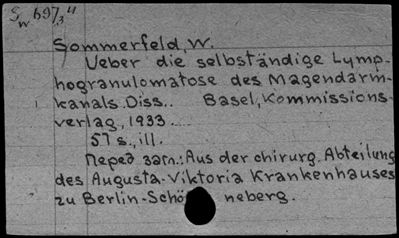 Sommerfeld, W.
Ueber die selbständige Lymp-
hogranulomatose des Magendarm-
kanals. Diss.. Basel, Kommissions-
verlag, 1933.
57 s., ill.
Перед загл.: Aus der chirurg. Abteilung
des Augusta-Viktoria Krankenhauses
zu Berlin-Schö neberg.